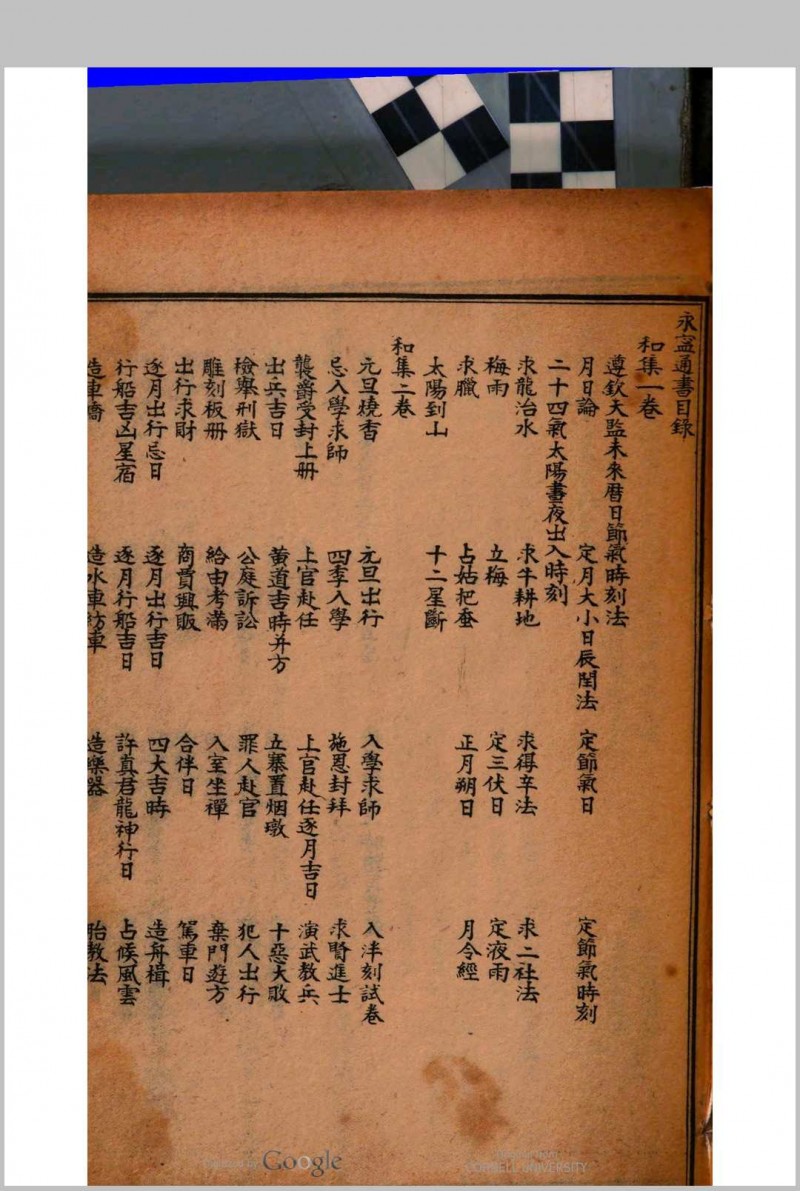 永寍通書目錄
和集一卷
遵欽天監未來曆日節氣時刻法
月日論 定月大小日辰閏法 定節氣日 定節氣時刻
二十四氣太陽晝夜出入時刻
求龍治水 求牛耕地 求得辛法 求二社法
梅雨 立梅 定三伏日 定液雨
求臘 占姑把蚕 正月朔日 月令經
太陽到山 十二星斷
和集二卷
元旦燒香 元旦出行 入學求師 入泮刻試卷
忌入學求師 四季入學 施恩封拜 求賢進士
襲爵受封上册 上官赴任 上官赴任逐月吉日 演武教兵
出兵吉日 黄道吉時并方 立寨置烟墩 十惡大敗
檢舉刑獄 公庭訴訟 罪人赴官 犯人出行
雕刻板册 給由考滿 入室坐禪 棄門遊方
出行求財 商賈興販 合伴日 駕車日
逐月出行忌日 逐月出行吉日 四大吉時 造舟楫
行船吉凶星宿 逐月行船吉日 許真君龍神行日 占候風雲
造車橋 造水車紡車 造樂器 胎教法
Digitized by Google
Original from
CORNELL UNIVERSITY